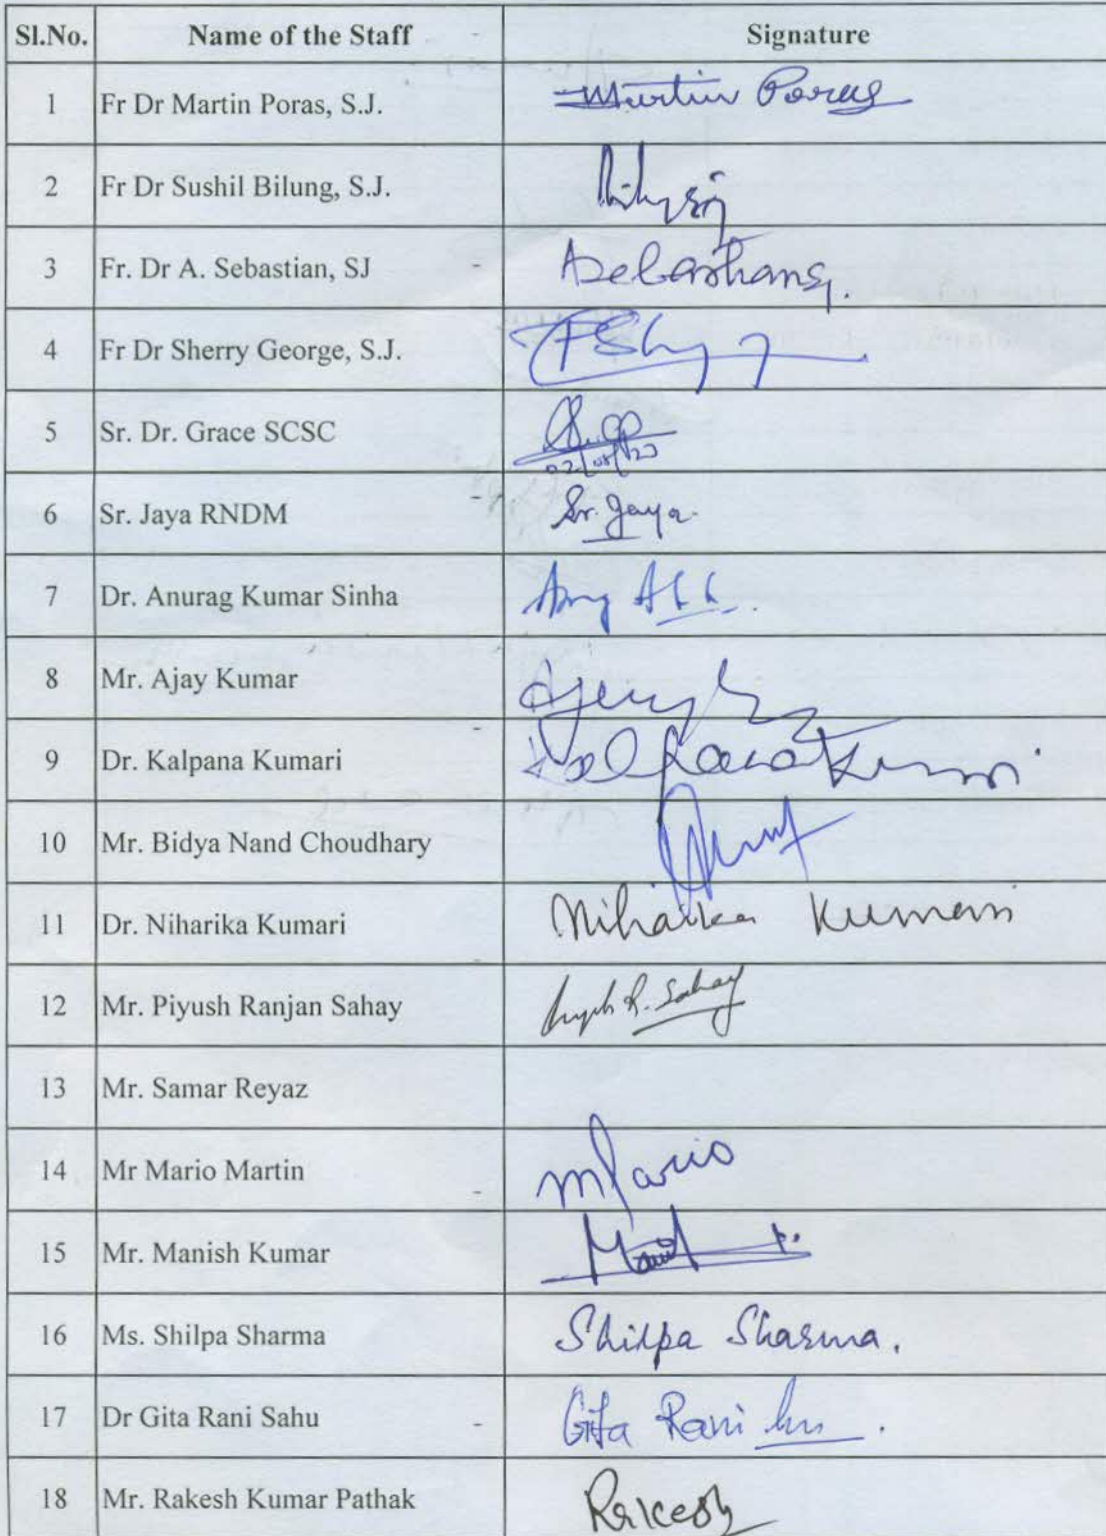 Sl.No. Name of the Staff Signature
1 Fr Dr Martin Poras, S.J. Martin Poras
2 Fr Dr Sushil Bilung, S.J.
3 Fr. Dr A. Sebastian, SJ
4 Fr Dr Sherry George, S.J.
5 Sr. Dr. Grace SCSC
6 Sr. Jaya RNDM Sr. Jaya
7 Dr. Anurag Kumar Sinha
8 Mr. Ajay Kumar
9 Dr. Kalpana Kumari Kalpana Kumari
10 Mr. Bidya Nand Choudhary
11 Dr. Niharika Kumari Niharika Kumari
12 Mr. Piyush Ranjan Sahay R. Sahay
13 Mr. Samar Reyaz
14 Mr Mario Martin Mario
15 Mr. Manish Kumar
16 Ms. Shilpa Sharma Shilpa Sharma.
17 Dr Gita Rani Sahu Gita Rani
18 Mr. Rakesh Kumar Pathak Rakesh